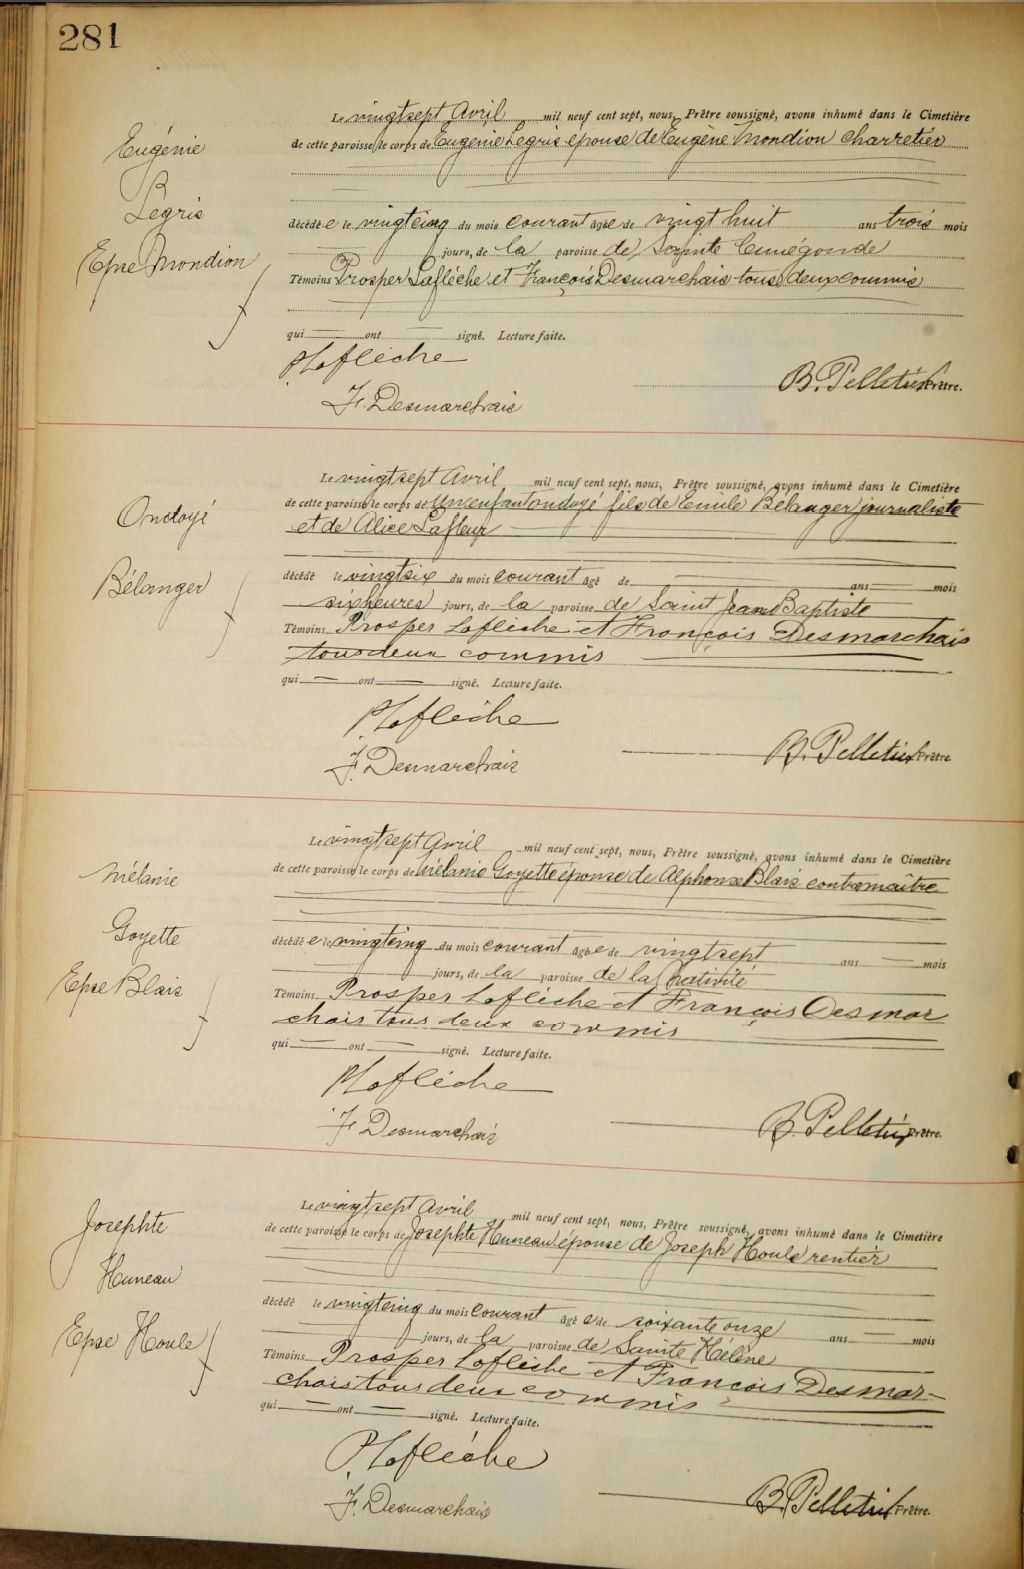 281
Eugénie
Legris
Epse Mondion
Le vingtsept Avril mil neuf cent sept, nous, Prêtre soussigné, avons inhumé dans le Cimetière
de cette paroisse, le corps de Eugénie Legris épouse de Eugène Mondion charretier
décédée le vingtcinq du mois courant âgée de vingt huit ans trois mois
jours, de la paroisse de Sainte Cunégonde
Témoins Prosper Laflèche et François Desmarchais tous deux commis
qui ont signé. Lecture faite.
P. Laflèche
B. Pelletier Prêtre.
F. Desmarchais
Ondoyé
Bélanger
Le vingtsept Avril mil neuf cent sept, nous, Prêtre soussigné, avons inhumé dans le Cimetière
de cette paroisse le corps de Un enfant ondoyé fils de Emile Bélanger journaliste
et de Alice Lafleur
décédé le vingtsix du mois courant âgé de ans mois
six heures jours, de la paroisse de Saint Jean Baptiste
Témoins Prosper Laflèche et François Desmarchais
tous deux commis
qui ont signé. Lecture faite.
P. Laflèche
B. Pelletier Prêtre
F. Desmarchais
Mélanie
Goyette
Epse Blais
Le vingtsept Avril mil neuf cent sept, nous, Prêtre soussigné, avons inhumé dans le Cimetière
de cette paroisse le corps de Mélanie Goyette épouse de Alphonse Blais contremaître
décédée le vingtcinq du mois courant âgée de vingtsept ans mois
jours, de la paroisse de la Nativité
Témoins Prosper Laflèche et François Desmar
chais tous deux commis
qui ont signé. Lecture faite.
P. Laflèche
F. Desmarchais
B. Pelletier Prêtre.
Josephte
Huneau
Epse Houle
Le vingtsept Avril mil neuf cent sept, nous, Prêtre soussigné, avons inhumé dans le Cimetière
de cette paroisse le corps de Josephte Huneau épouse de Joseph Houle rentier
décédé le vingtcinq du mois courant âgée de soixante onze ans mois
jours, de la paroisse de Sainte Hélène
Témoins Prosper Laflèche et François Desmar-
chais tous deux commis
qui ont signé. Lecture faite.
P. Laflèche
F. Desmarchais
B. Pelletier Prêtre.